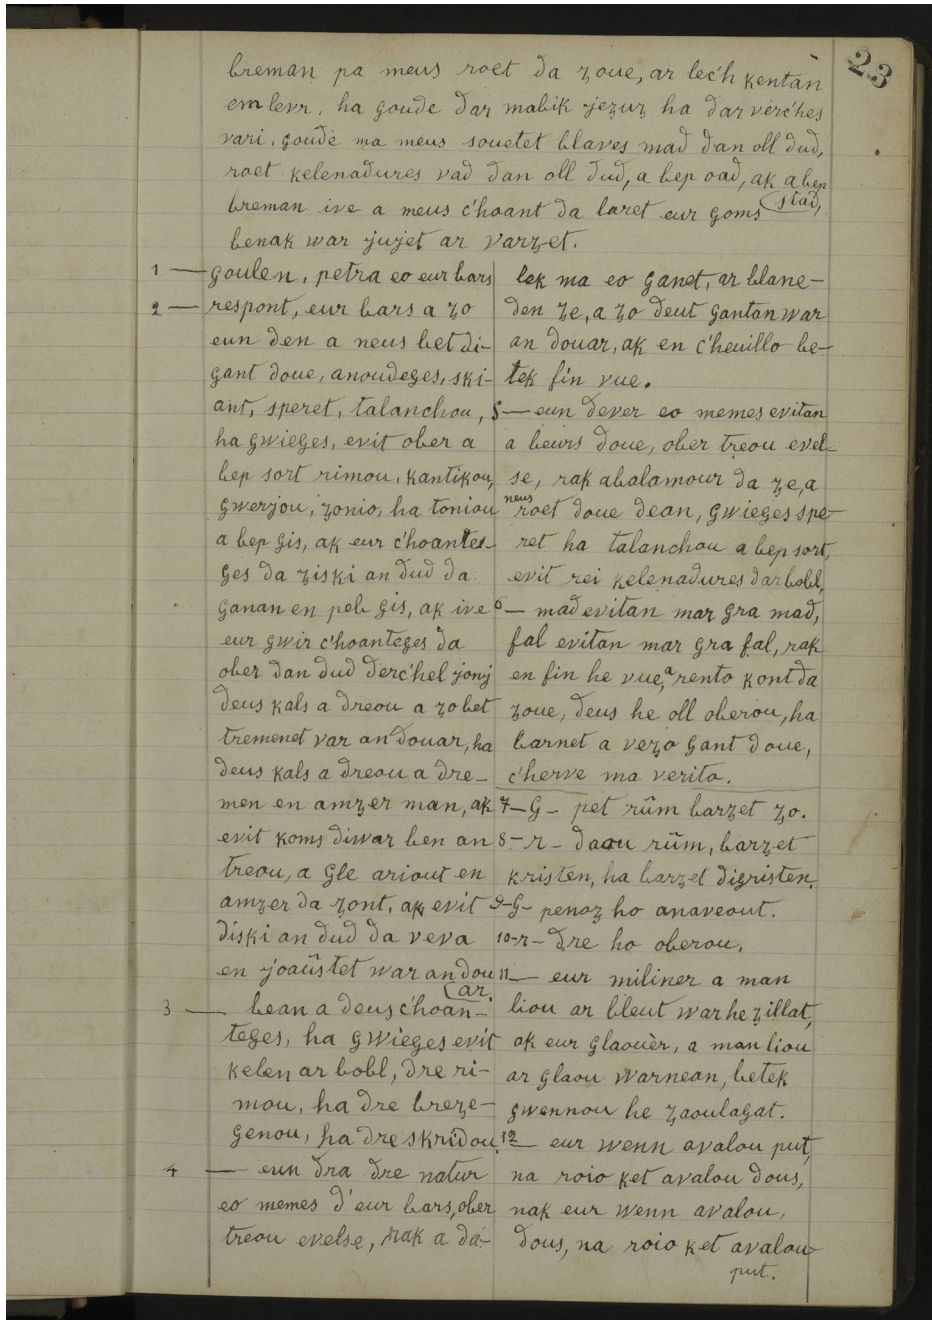 23
breman pa meus roet da zoue, ar lec'h kentan
em levr, ha goude dar mabik jezuz ha dar vérc'hes
vari, goude ma meus souetet blaves mad dan oll dud,
roet kelenadures vad dan oll dud, a bep oad, ak a bep
stad,
breman ive a meus c'hoant da laret eur goms
benak war jujet ar varzet.
1 — goulen, petra eo eur bars
2 — respont, eur bars a zo
eun den a neus bet di-
gant doue, anoudeges, ski-
ant, speret, talanchou,
ha gwieges, evit ober a
bep sort rimou, kantikou,
gwerjou, zonio, ha toniou
a bep gis, ak eur c'hoante-
ges da ziski an dud da
ganan en peb gis, ak ive
eur gwir c'hoanteges da
ober dan dud derc'hel jonj
deus kals a dreou a zo bet
tremenet var an douar, ha
deus kals a dreou a dre-
men en amzer man, ak
evit koms diwar ben an
treou, a gle ariout en
amzer da zont, ak evit
diski an dud da veva
en joaüstet war an dou
ar.
3 — bean a deus c'hoan-
teges, ha gwieges evit
kelen ar bobl, dre ri-
mou, ha dre breze-
genou, ha dre skridou.
4 — eun dra dre natur
eo memes d'eur bars, ober
treou evelse, rak a da-
lek ma eo ganet, ar blane-
den ze, a zo deut gantan war
an douar, ak en c'heuillo be-
tek fin vue.
5 — eun dever eo memes evitan
a beurs doue, ober treou evel-
se, rak abalamour da ze, a
neus roet doue dean, gwieges spe-
ret ha talanchou a bep sort,
evit rei kelenadures dar bobl,
6 — mad evitan mar gra mad,
fal evitan mar gra fal, rak
en fin he vue, a rento kont da
zoue, deus he oll oberou, ha
barnet a vezo gant doue,
c'herve ma verito.
7 – G – pet rüm barzet zo.
8 – r – daou rüm, barzet
kristen, ha barzet digristen.
9 – G – penoz ho anaveout.
10 – r – dre ho oberou.
11 — eur miliner a man
liou ar bleut war he zillat,
ak eur glaouèr, a man liou
ar glaou warnean, betek
gwennou he zaoulagat.
12 — eur wenn avalou put,
na roio ket avalou dous,
nak eur wenn avalou,
dous, na roio ket avalou
put.